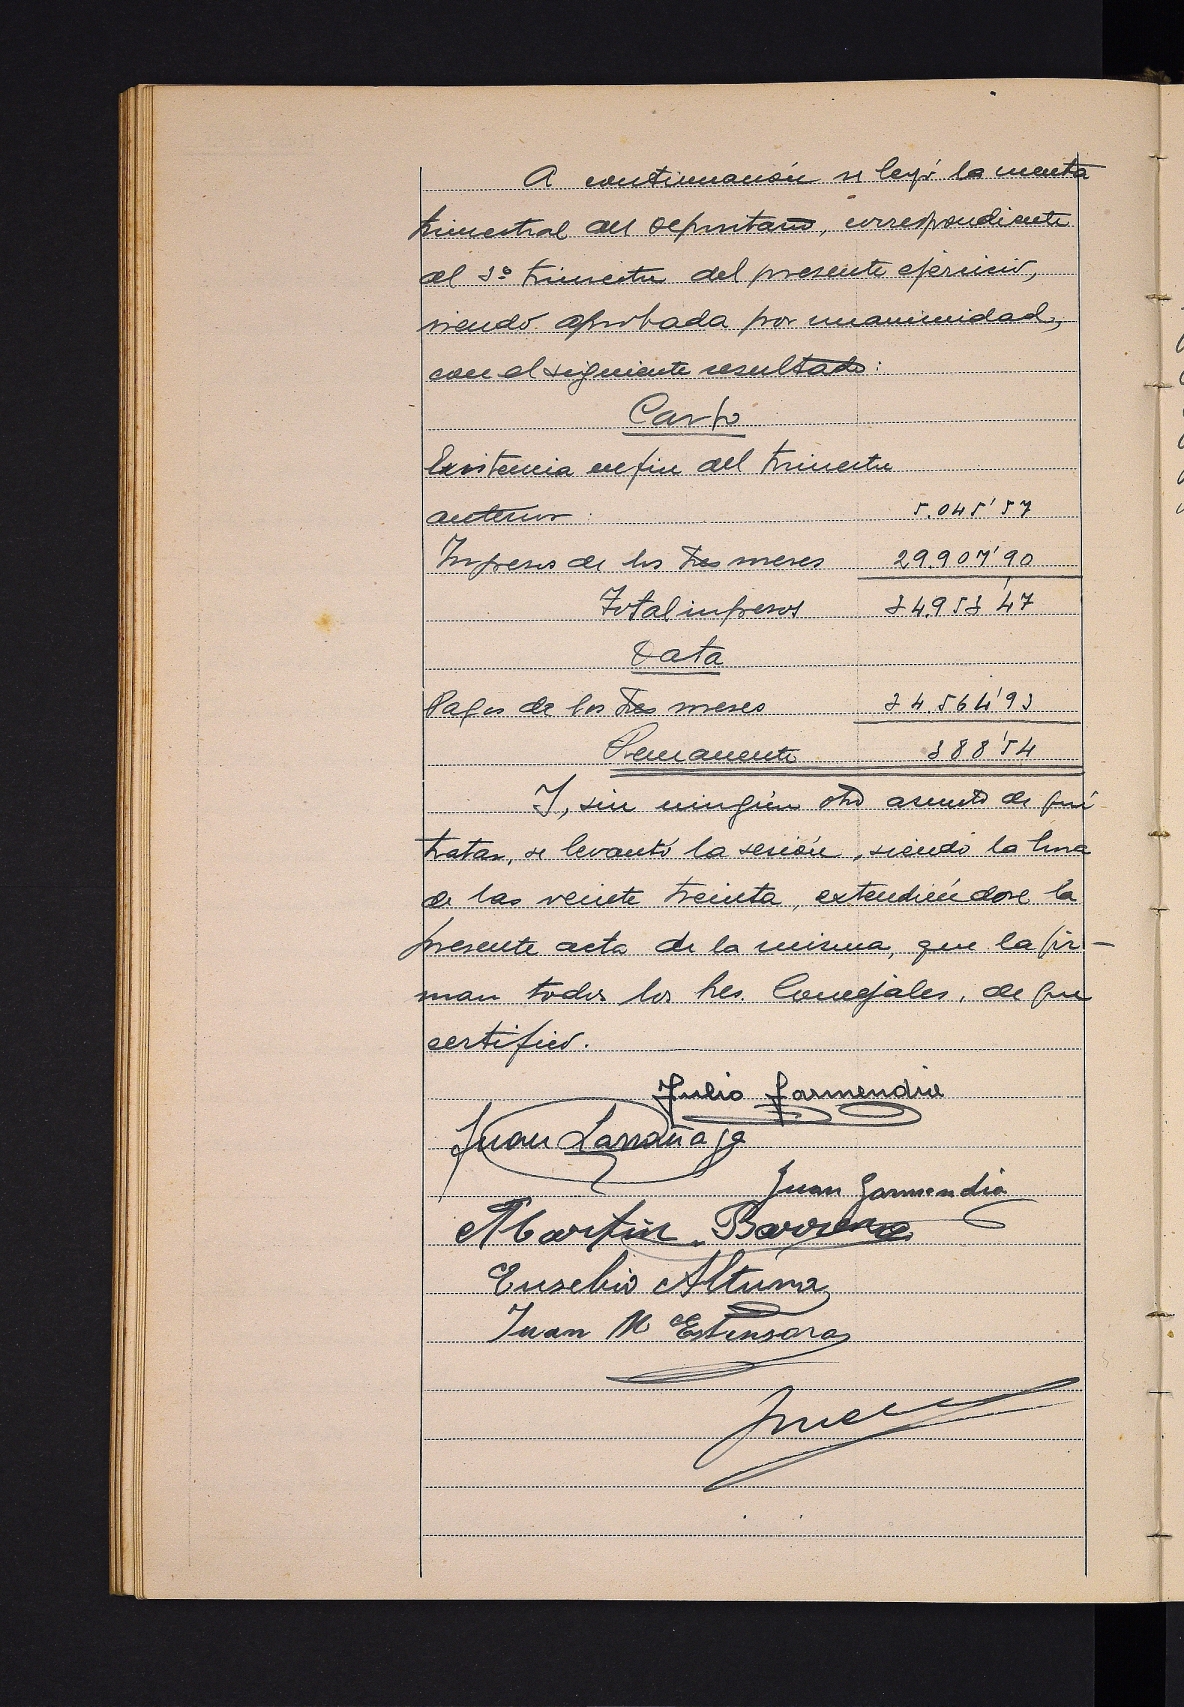 A continuación se leyó la cuenta
trimestral del Depositario, correspondiente
al 3º trimestre del presente ejercicio,
siendo aprobada por unanimidad,
con el siguiente resultado:
Cargo
Existencia en fin del trimestre
anterior 5.045'57
Ingresos de los tres meses 29.907'90
Total ingresos 34.953'47
Data
Pagos de los tres meses 34.564'93
Remanente 388'54
Y, sin ningún otro asunto de qué
tratar, se levantó la sesión, siendo la hora
de las veinte treinta, extendiéndose la
presente acta de la misma, que la fir-
man todos los Sres. Concejales, de que
certifico.
Julio Garmendia
Juan Larrañaga
Juan Garmendia
Martín Barrena
Eusebio Altuna
Juan M Estensoro